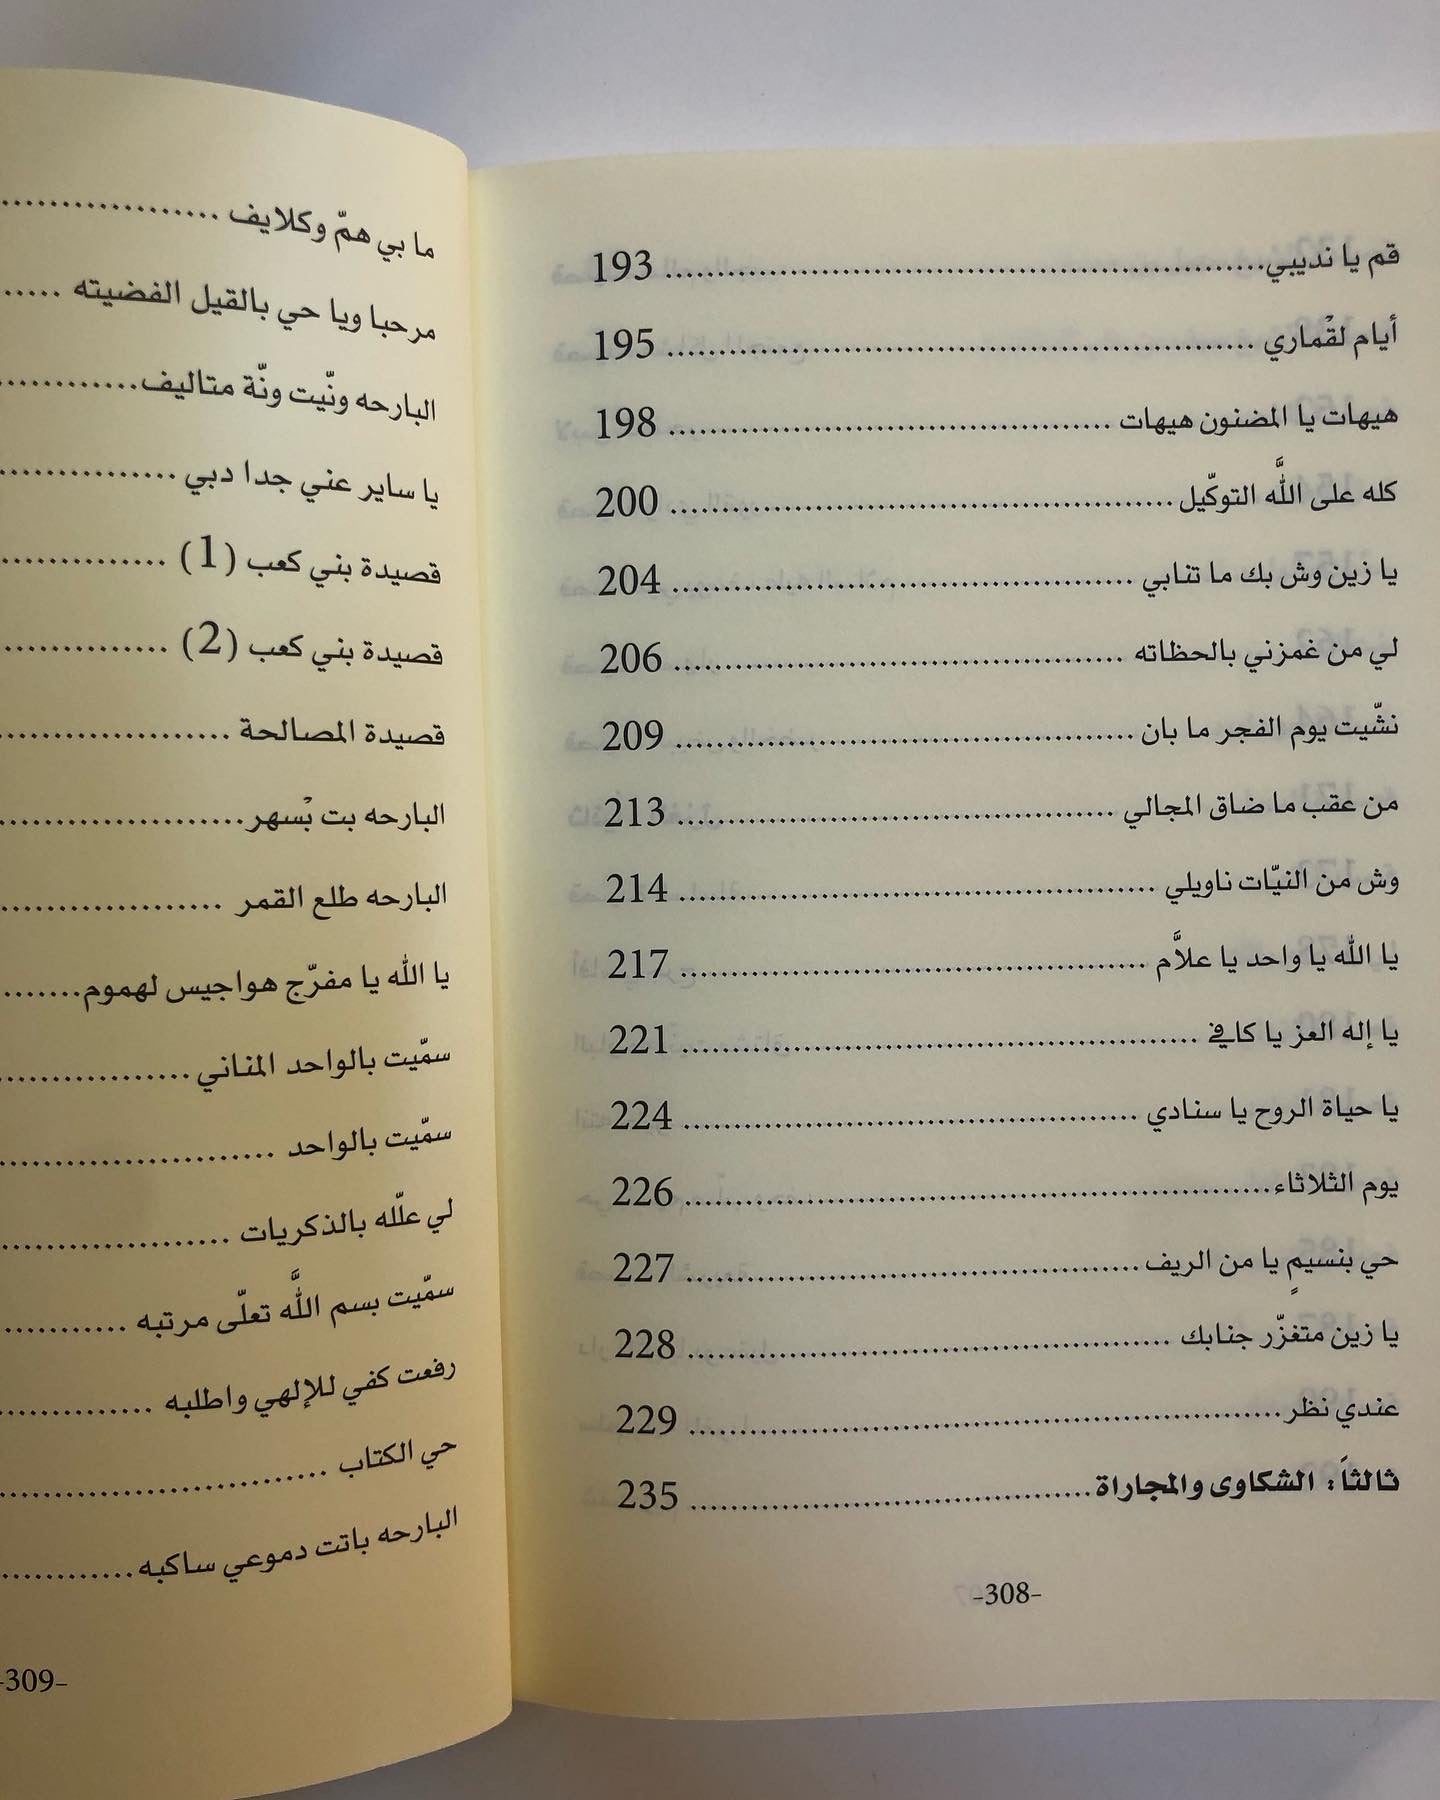 قم يا نديبي.................................................. 193
أيام لقْماري .................................................. 195
هيهات يا المضنون هيهات .................................................. 198
كله على اللَّه التوكّيل .................................................. 200
يا زين وش بك ما تنابي .................................................. 204
لي من غمزني بالحظاته .................................................. 206
نشّيت يوم الفجر ما بان .................................................. 209
من عقب ما ضاق المجالي .................................................. 213
وش من النيّات ناويلي .................................................. 214
يا الله يا واحد يا علاَّم .................................................. 217
يا إله العز يا كافي .................................................. 221
يا حياة الروح يا سنادي .................................................. 224
يوم الثلاثاء.................................................. 226
حي بنسيمٍ يا من الريف.................................................. 227
يا زين متغزّر جنابك .................................................. 228
عندي نظر.................................................. 229
ثالثاً: الشكاوى والمجاراة.................................................. 235
-308-
ما بي همّ وكلايف ..................
مرحبا ويا حي بالقيل الفضيته .....
البارحه ونّيت ونّة متاليف............
يا ساير عني جدا دبي ...............
قصيدة بني كعب (1) ..............
قصيدة بني كعب (2) ..............
قصيدة المصالحة ....................
البارحه بت بْسهر.....................
البارحه طلع القمر ...................
يا الله يا مفرّج هواجيس لهموم.......
سمّيت بالواحد المناني................
سمّيت بالواحد .......................
لي علّله بالذكريات ....................
سمّيت بسم اللَّه تعلّى مرتبه ............
رفعت كفي للإلهي واطلبه ..............
حي الكتاب ............................
البارحه باتت دموعي ساكبه............
-309-